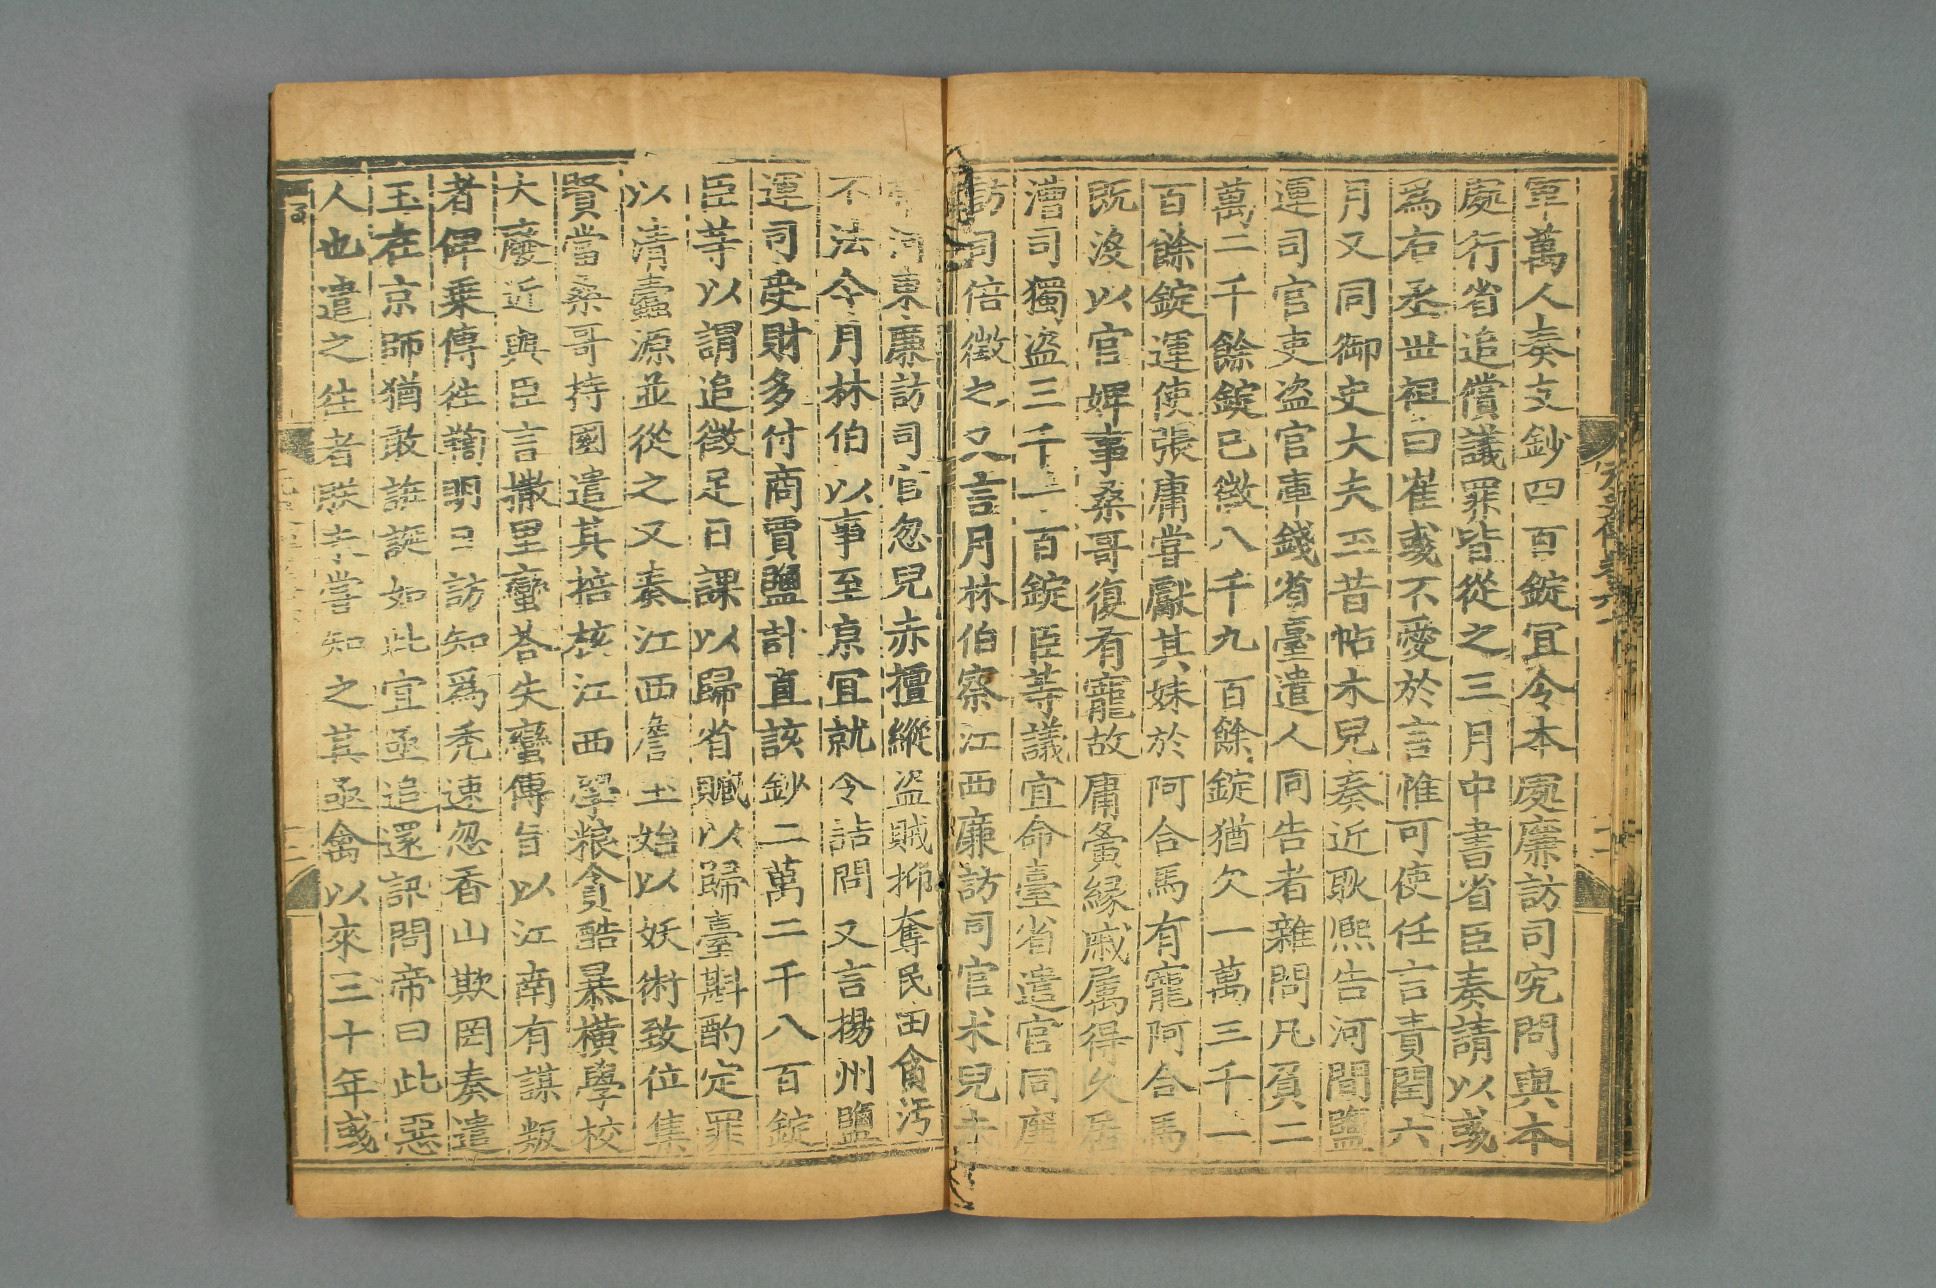 軍萬人奏支鈔四百錠冝令本處廉訪司究問與本
處行省追償議罪皆從之三月中書省臣奏請以彧
為右丞世祖曰崔彧不愛於言惟可使任言責閏六
月又同御史大夫玉昔帖木兒奏近耿熈告河間鹽
運司官吏盗官庫錢省臺遣人同告者雜問凡負二
萬二千餘錠已徵八千九百餘錠猶欠一萬三千一
百餘錠運使張庸嘗獻其妹於阿合馬有寵阿合馬
既沒以官婢事桑哥復有寵故庸夤緣戚屬得久居
漕司獨盗三千一百錠臣等議宜命臺省遣官同廉
訪司倍徵之又言月林伯察江西廉訪司官朮兒赤
帶河東廉訪司官忽兒赤擅縱盗賊抑奪民田貪汚
不法今月林伯以事至京冝就令詰問又言揚州鹽
運司受財多付商賈鹽計直該鈔二萬二千八百錠
臣等以謂追徵足日課以歸省贓以歸臺斟酌定罪
以清蠧源並從之又奏江西詹玉始以妖術致位集
賢當桑哥持國遣其掊核江西學粮貪酷暴橫學校
大廢近與臣言撒里蠻荅失蠻傳旨以江南有謀叛
者俾乗傳徃鞫明日訪知爲秃速忽香山欺罔奏遣
玉在京師猶敢誑誕如此宜亟追還訊問帝曰此惡
人也遣之徃者朕未嘗知之其亟禽以來三十年彧